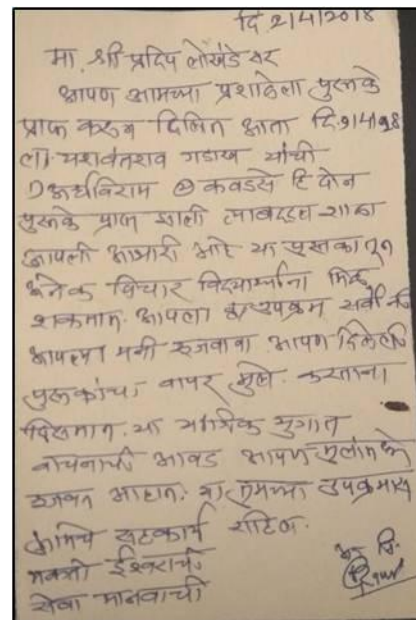 दि 2/4/2018
मा. श्री प्रदिप लोखंडे सर
आपण आमच्या प्रशालेला पुस्तके
प्राप्त करुन दिलित आता दि.
ला यशवंतराव गडाख यांची
① अर्धविराम ② कवडसे हि दोन
पुस्तके प्राप्त झाली त्याबद्दल शाळा
आपली आभारी आहे या पुस्तकातून
अनेक विचार विद्यार्थ्यांना मिळू
शकतात. आपला उपक्रम सर्वांनी
आपल्या मनी रुजवावा. आपण दिलेली
पुस्तकांचा वापर मुले करताना
दिसतात. या यांत्रिक युगात
वाचनाची आवड आपण मुलांमध्ये
रुजवत आहात. या तुमच्या उपक्रमास
आमचे सहकार्य राहिल.
भक्ती ईश्वराची
सेवा मानवाची